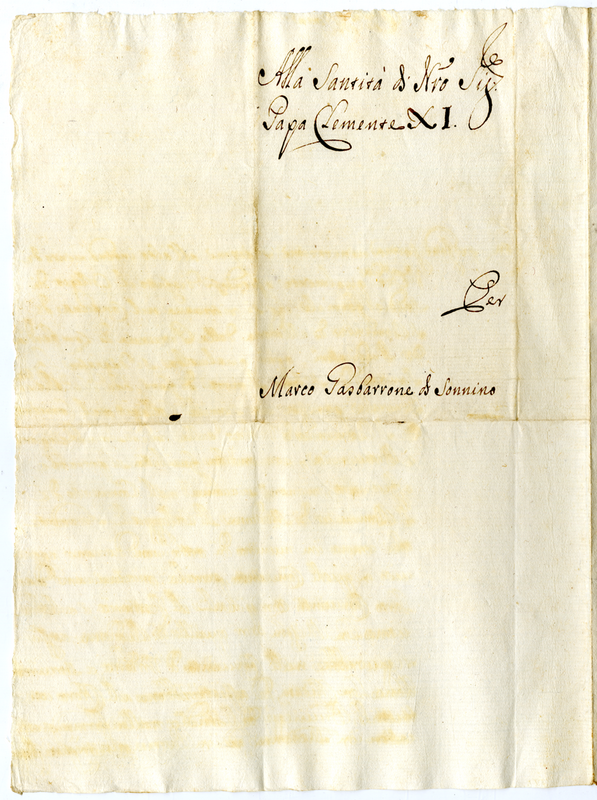 Alla Santità di Nro Sigre
Papa Clemente XI.
Per
Marco Gasbarrone di Sonnino